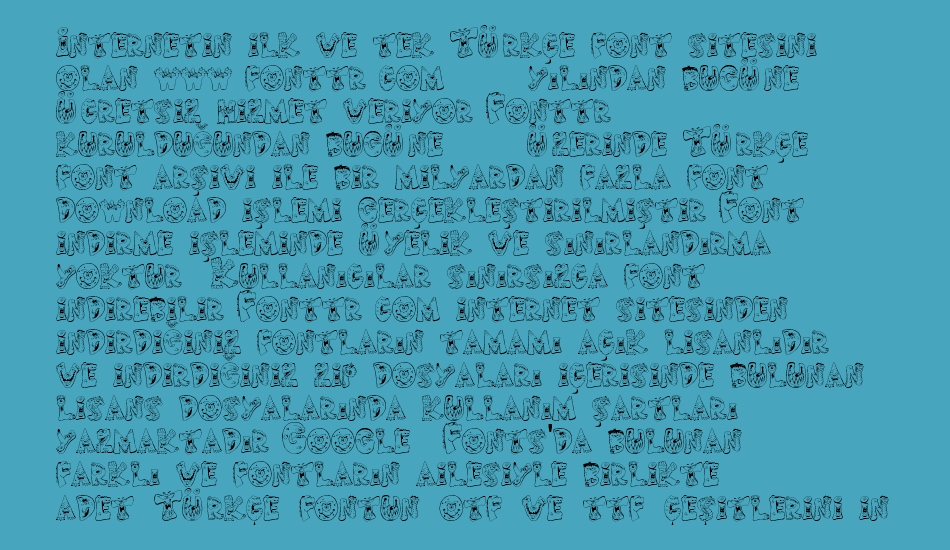 İnternetin ilk ve tek Türkçe font sitesini
olan www fonttr com yılından bugüne
ücretsiz hizmet veriyor Fonttr
kurulduğundan bugüne üzerinde Türkçe
font arşivi ile bir milyardan fazla font
download işlemi gerçekleştirilmiştir Font
indirme işleminde üyelik ve sınırlandırma
yoktur Kullanıcılar sınırsızca font
indirebilir Fonttr com internet sitesinden
indirdiğiniz fontların tamamı açık lisanlıdır
ve indirdiğiniz zip dosyaları içerisinde bulunan
lisans dosyalarında kullanım şartları
yazmaktadır Google Fonts'da bulunan
farklı ve fontların ailesiyle birlikte
adet Türkçe fontun otf ve ttf çeşitlerini in